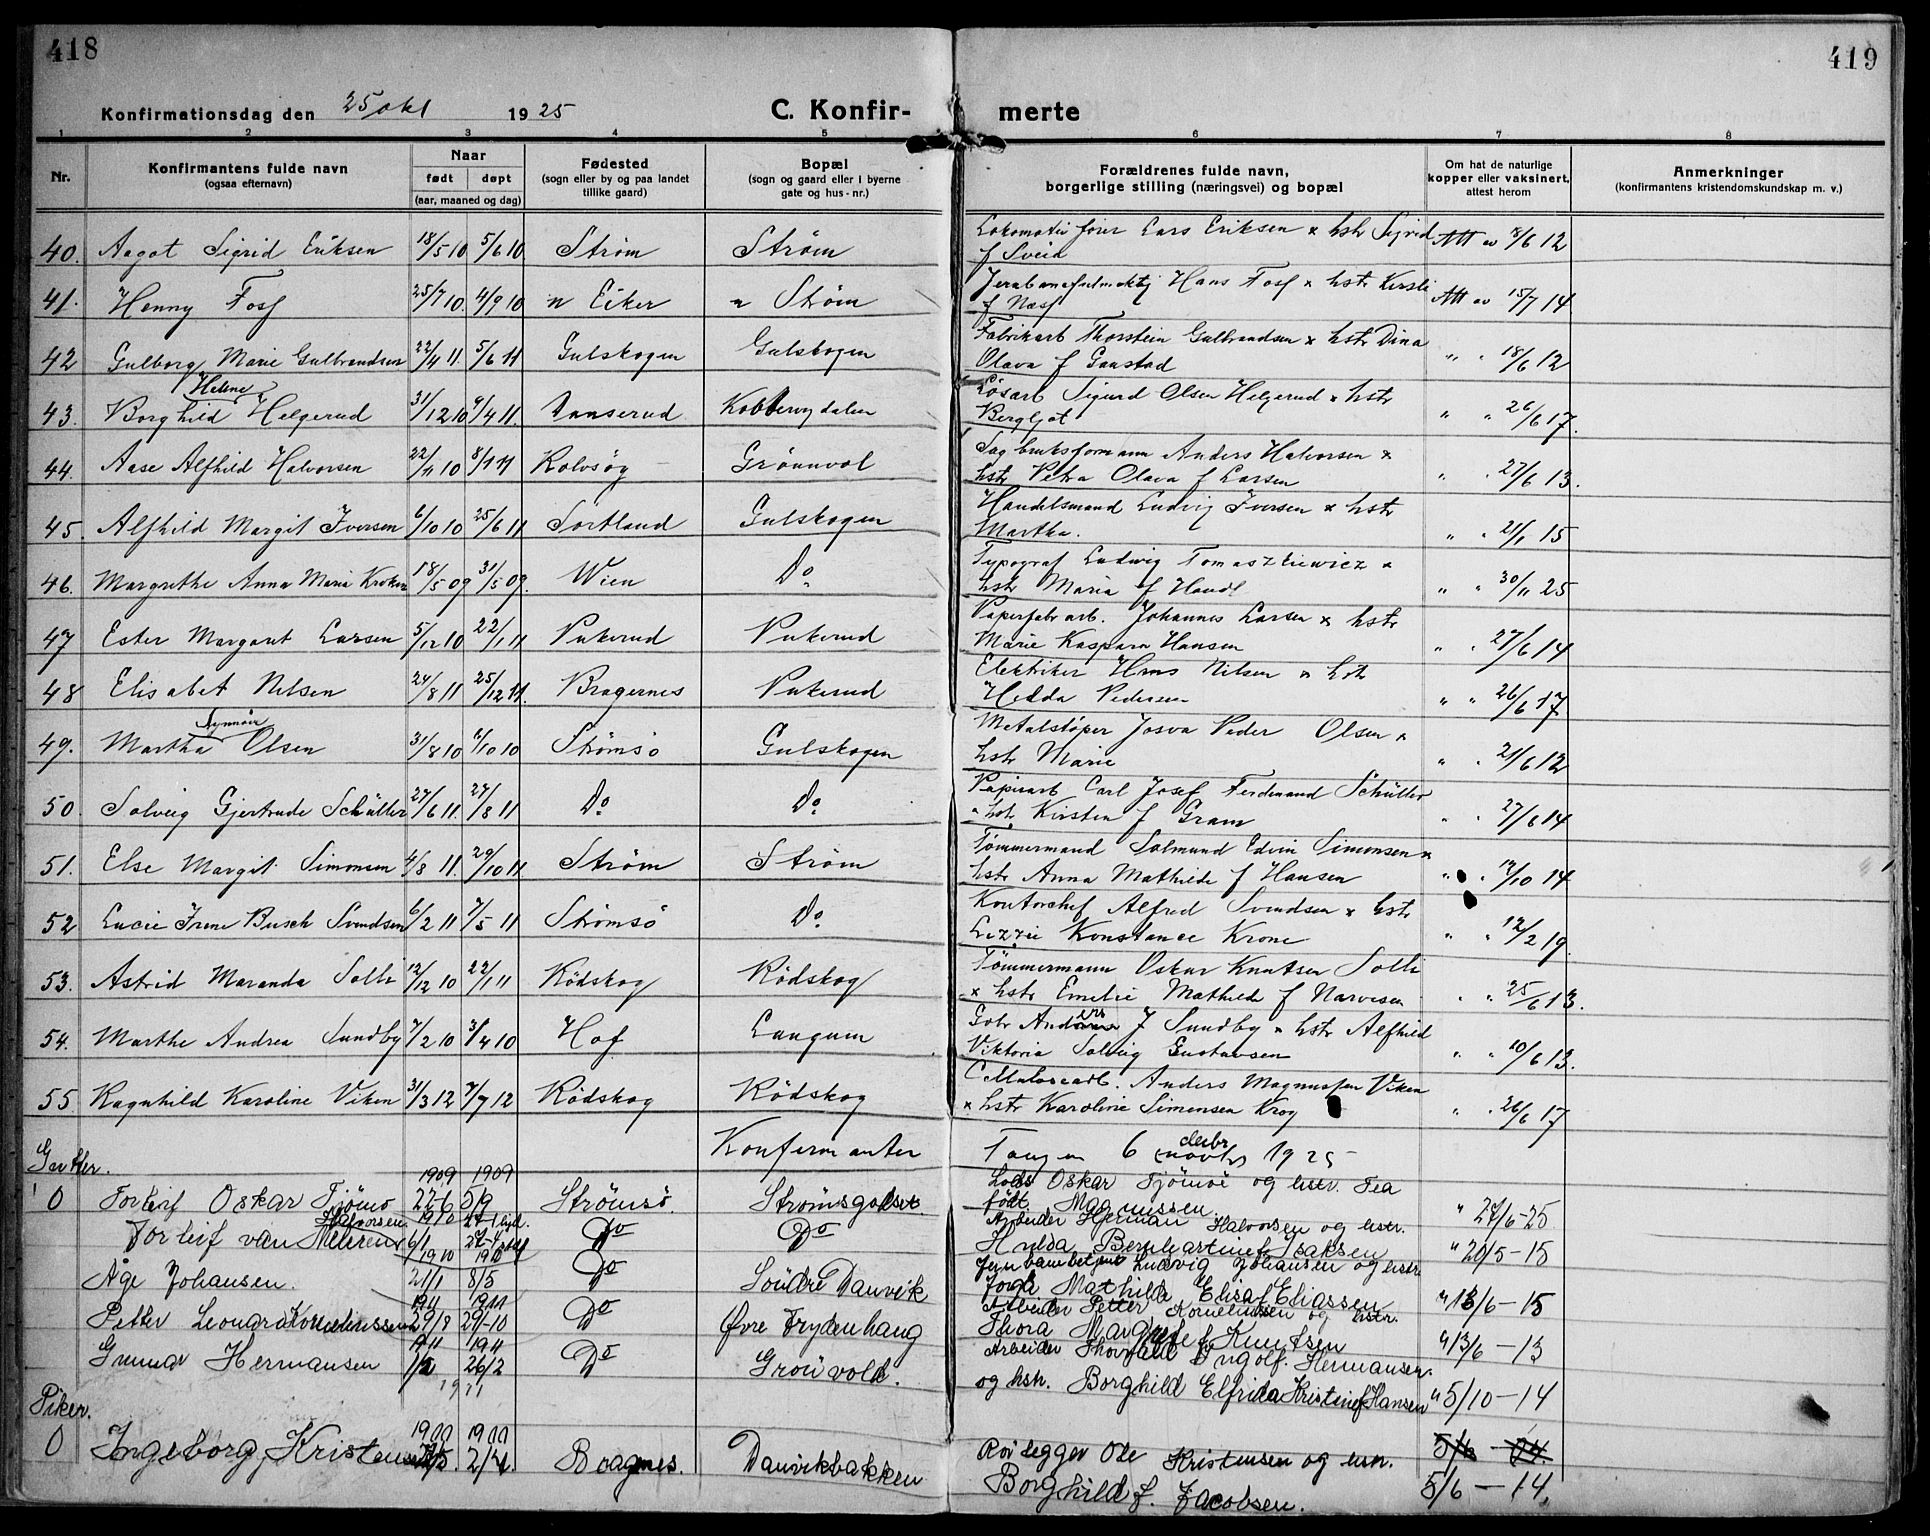 418
419
Konfirmationsdag den 25 okt 1925 C. Konfir- merte
1 2 3 4 5 6 7 8
Nr. Konfirmantens fulde navn (ogsaa efternavn) Naar født døpt (aar, maaned og dag) Fødested (sogn eller by og paa landet tillike gaard) Bopæl (sogn og gaard eller i byerne gate og hus-nr.) Forældrenes fulde navn, borgerlige stilling (næringsvei) og bopæl Om hat de naturlige kopper eller vaksinert, attest herom Anmerkninger (konfirmantens kristendomskundskap m. v.)
40. Aagot Sigrid Eriksen 18/5 10 5/6 10 Strøm Strøm Lokomotivfører Lars Eriksen x hstr Sigrid Att av 18/6 12
f Sveia
41. Henny Foss 25/7 10. 4/9 10 n Eiker n Strøm Jernbanefulmektig Hans Foss x hstr Kirsti Att av 15/7 14
f Næss
42 Gulborg Marie Gulbrandsen 22/4 11. 5/6 11 Gulskogen Gulskogen Fabrikarb Thorstein Gulbrandsen x hstr Dina
Olava f Gaustad " " 18/6 12
Helene
43. Borghild Helgerud 31/12 10 9/4 11. Danserud Kobbervydalen Løsarb Sigurd Olsen Helgerud x hstr
Bergljot " " 26/6 17.
44. Aase Alfhild Halvorsen 22/11 10 8/1 11 Kolvsög Grönnvol Sagbruksformann Anders Halvorsen x
hstr Petra Olava f Larsen " " 27/6 13.
45. Alfhild Margit Iversen 6/10 10 25/6 11 Sortland Gulskogen Handelsmand Ludvig Iversen x hstr
Martha. " " 21/1 15
46. Margrethe Anna Maria 18/5 09 31/5 09. Wien Do Typograf Ludwig Tomaszkiewicz x
hstr Maria f Handl " " 30/11 25
47 Ester Margaret Larsen 5/12 10 22/1 11 Pukerud Pukerud Papirfabr arb. Johannes Larsen x hstr
Marie Kaspara Hansen " " 27/6 14
48 Elisabet Nilsen 24/8 11 25/12 11. Bragernes Pukerud Elektriker Hans Nilsen x hstr
Hedda Pedersen " " 26/6 17
Synnöve
49. Martha Olsen 31/8 10 /10 10 Strømsö Gulskogen Metalstöper Josva Peder Olsen x
hstr Marie " " 21/6 12
50. Solveig Gjertrude Schüller 27/6 11. 27/8 11 Do Do Papirarb Carl Josef Ferdinand Schüller
x hstr Kirsten f Gram " " 27/6 14
51. Else Margit Simonsen 4/8 11. 29/10 11 Strøm Strøm Tømmermand Salmund Edvin Simonsen x
hstr Anna Mathilde f Hansen " " 12/10 14
52 Lucie Irene Busch Svendsen 6/2 11 7/5 11 Strømsö Do Kontorchef Alfred Svendsen x hstr
Lizzie Konstance Krone " " 12/2 19.
53. Astrid Maranda Solli 12/12 10 22/1 11 Rödskog Rödskog Tömmermann Oskar Knutsen Solli
x hstr Emelie Mathilde f Narvesen " " 25/6 13.
54. Marthe Andrea Sundby 7/2 10 3/4 10 Hof Langum Gbr Anders J Sundby x hstr Alfhild
Viktoria Solveig Gustavsen " " 10/6 13.
55 Ragnhild Karoline Viken 31/3 12 7/7 12 Rödskog Rödskog Cellulosearb. Anders Magnussen Viken
x hstr Karoline Simensen Krog " " 26/6 17
Konfirmanter Tangen 6 (novbr) debr 1925
Gutter. 1909 1909
0 Torleif Oskar Tjömö 22-6 5/9 Strömsö. Strömsgodset Lods Oskar Tjömöe og hstr. Tea
født Magnussen. " 24/6-25
Halvorsen 1910 27-1 hjd.
Torleif van Meeren 6/1 Do Do Arbeider Herman Halvorsen og hstr.
Hulda Bernhartine f Isaksen " 20/5-15
1910 1910
Åge Johansen. 21/1 8/5 Do Söndre Danvik Jernbanebetjent Ludvig Johansen og hstr.
Mathilde Elisa f Eliassen " 13/6-15
1911 1911
Petter Leonard Korneliussen 29/8 29-10 Do Øvre Frydenhaug Arbeider Petter Korneliussen og hstr.
Thora Margrete f Knutsen " 13/6-13
1911 1911
Gunnar Hermansen 26/2 Do Grönvold. Arbeider Thorvald Ingolf. Hermansen
og hstr. Borghild Elfrida Kristine f Hansen " 5/10-14
1911
Piker.
0 Ingeborg Kristensen Bragnes. Danvikbakken Rørlegger Ole Kristensen og hstr.
Borghild f. Jacobsen. 5/6-14.